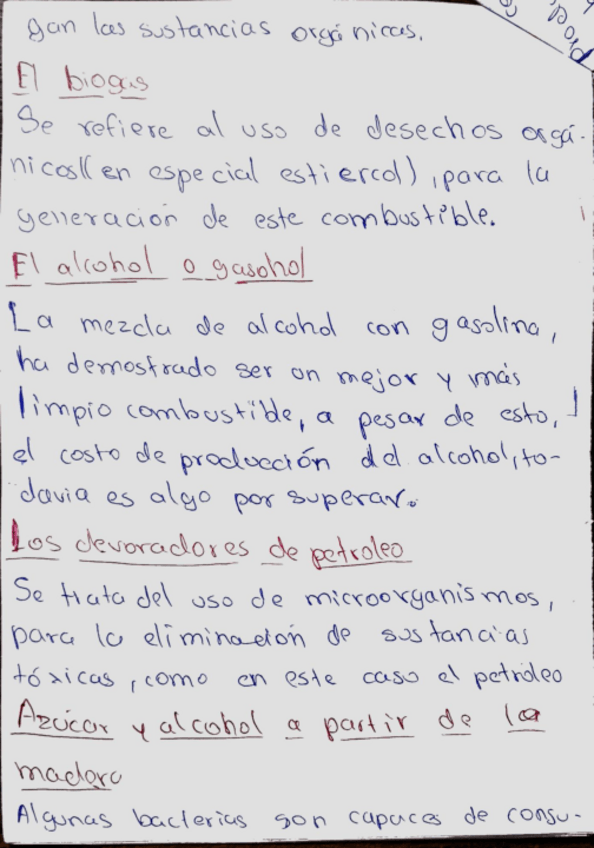 gan las sustancias orgánicas.
El biogas
Se refiere al uso de desechos orgá-
nicos((en especial estiercol), para la
generación de este combustible.
El alcohol o gasohol
La mezcla de alcohol con gasolina,
ha demostrado ser un mejor y más
limpio combustible, a pesar de esto,
el costo de producción del alcohol, to-
davia es algo por superar.
Los devoradores de petroleo
Se trata del uso de microorganismos,
para la eliminación de sustancias
tóxicas, como en este caso el petróleo
Azúcar y alcohol a partir de la
madera
Algunas bacterias son capaces de consu-